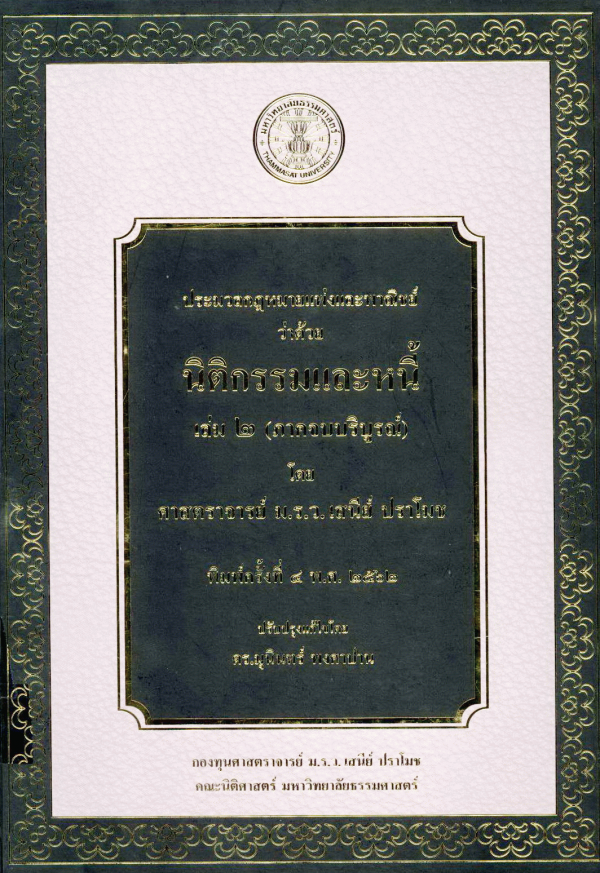 มหาวิทยาลัยธรรมศาสตร์
THAMMASAT UNIVERSITY
ประมวลกฎหมายแพ่งและพาณิชย์
ว่าด้วย
นิติกรรมและหนี้
เล่ม ๒ (ภาคจบบริบูรณ์)
โดย
ศาสตราจารย์ ม.ร.ว.เสนีย์ ปราโมช
พิมพ์ครั้งที่ ๔ พ.ศ. ๒๕๖๒
ปรับปรุงแก้ไขโดย
ดร.มุนินทร์ พงศาปาน
กองทุนศาสตราจารย์ ม.ร.ว.เสนีย์ ปราโมช
คณะนิติศาสตร์ มหาวิทยาลัยธรรมศาสตร์